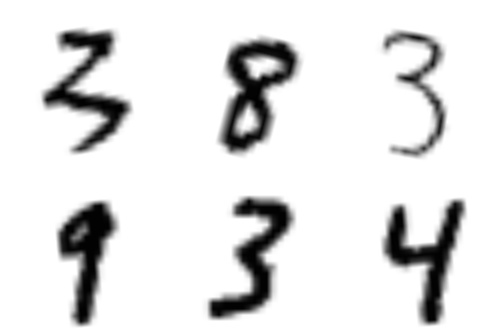 3 8 3
9 3 4